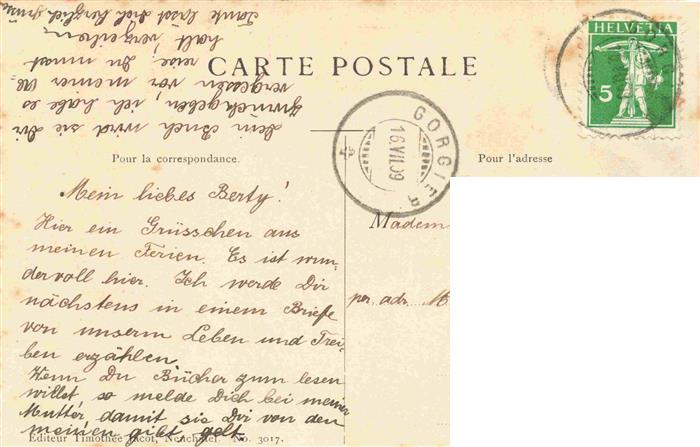 CARTE POSTALE
HELVETIA
5
GORGIER
16.VII.09
Pour la correspondance.
Pour l'adresse
Mein liebes Berty!
Hier ein Grüsschen aus
meinen Ferien. Es ist wun-
dervoll hier. Ich werde Dir
nächstens in einem Briefe
von unserm Leben und Trei-
ben erzählen.
Wenn Du Bücher zum lesen
willst, so melde Dich bei meiner
Mutter, damit sie Dir von den
meinen gibt gelt.
Dein Buch wird sie Dir
zurückgeben, ich habe es
vergessen vor meiner Ab-
reise. Du musst
halt verzeihen
Tante lässt dich herzlich grüssen
Madem
per. adr. M
Editeur Timothée Jacot, Neuchâtel. No. 3017.